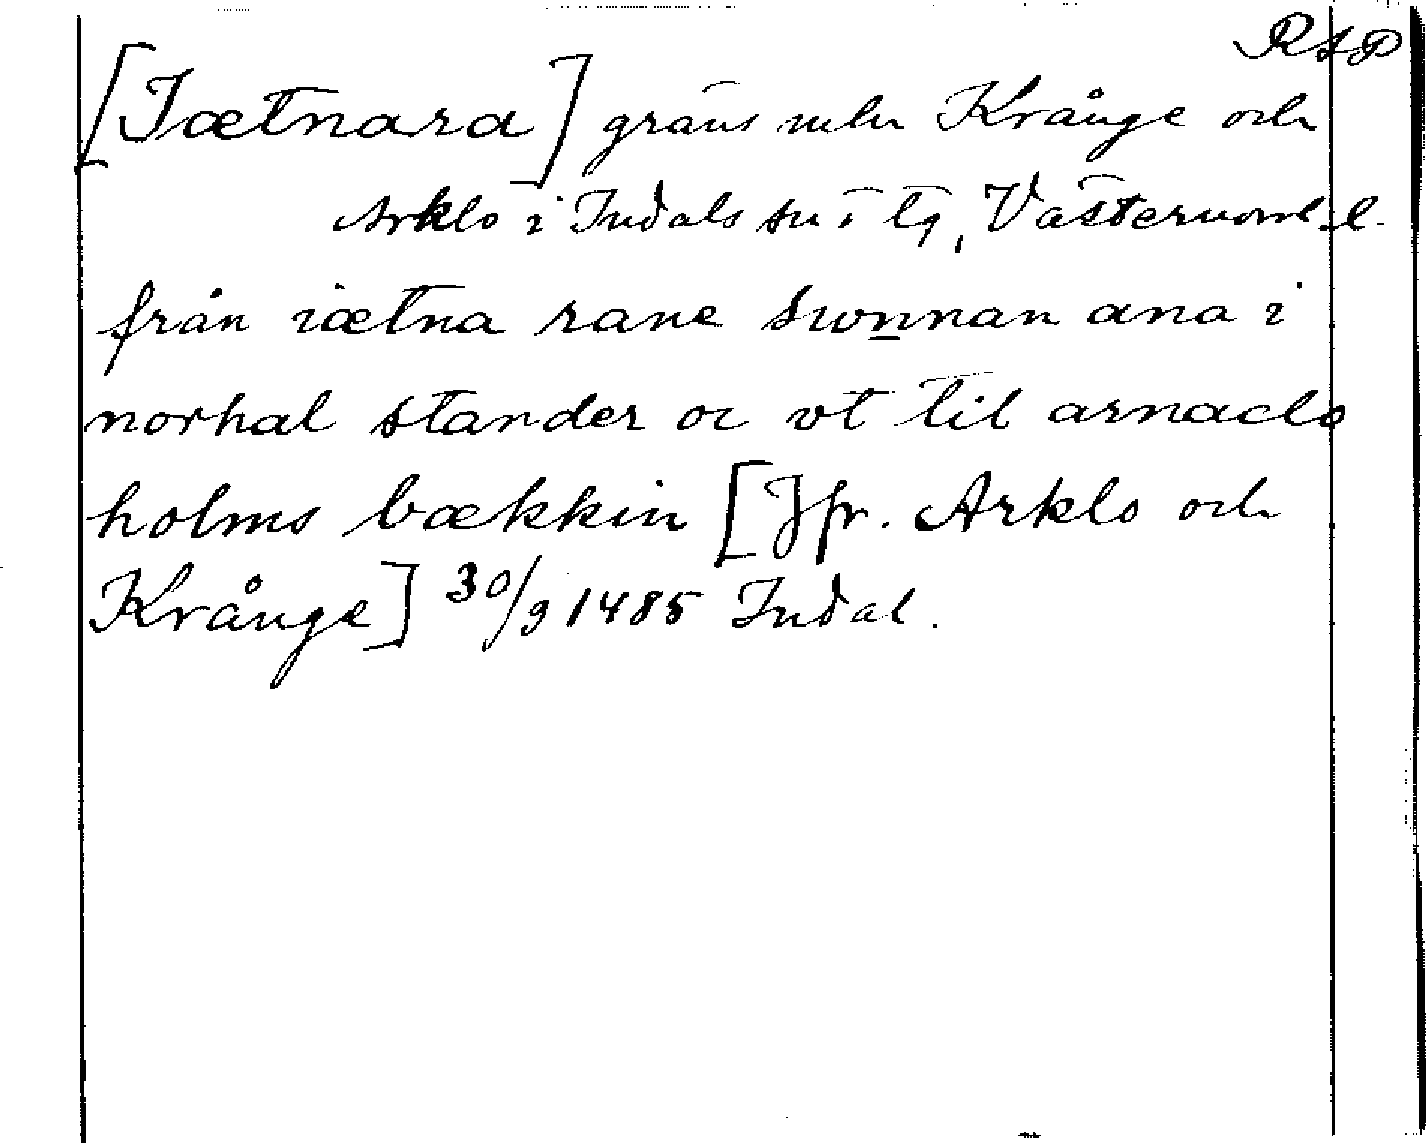 RAP
[Iætnara] gräns mln Krånge och
Arklo i Indals sn o tg, Västernorrl. l.
från iætna rane swnnan ana i
norhal stander oc vt til arnaclo
holms bækkin [Jfr. Arklo och
Krånge] 30/9 1485 Indal.